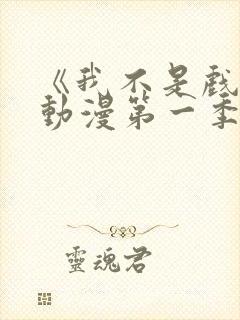 《我不是戲
動漫第一季
靈魂君